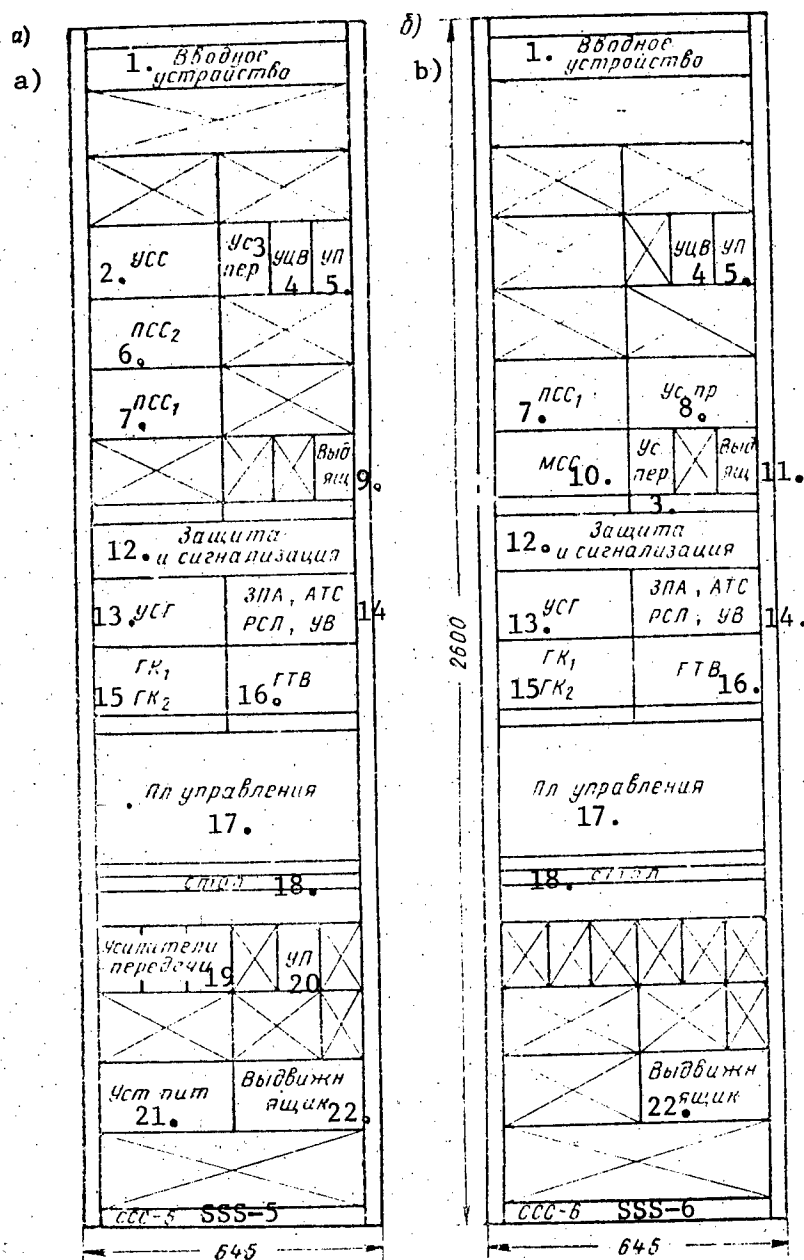 а)
a)
1. Вводное
устройство
2. УСС
Ус 3
пер
УЦВ
4
УП
5.
ПСС₂
6.
7. ПСС₁
Выд
ящ 9.
12. Защита
и сигнализация
13. УСГ
ЗПА, АТС
РСЛ, УВ
14
ГК₁
15 ГК₂
16. ГТВ
Пл управления
17.
стол 18.
Усилители
передачи 19
УП
20
Уст пит
21.
Выдвижн
ящик 22.
ССС-5 SSS-5
645
б)
b)
1. Вводное
устройство
УЦВ
4
УП
5.
7. ПСС₁
Ус пр
8.
МСС 10.
Ус.
пер
3.
Выд
ящ 11.
12. Защита
и сигнализация
13. УСГ
ЗПА, АТС
РСЛ, УВ
14.
ГК₁
15 ГК₂
ГТВ 16.
Пл управления
17.
18. стол
Выдвижн
22. ящик
ССС-6 SSS-6
2600
645